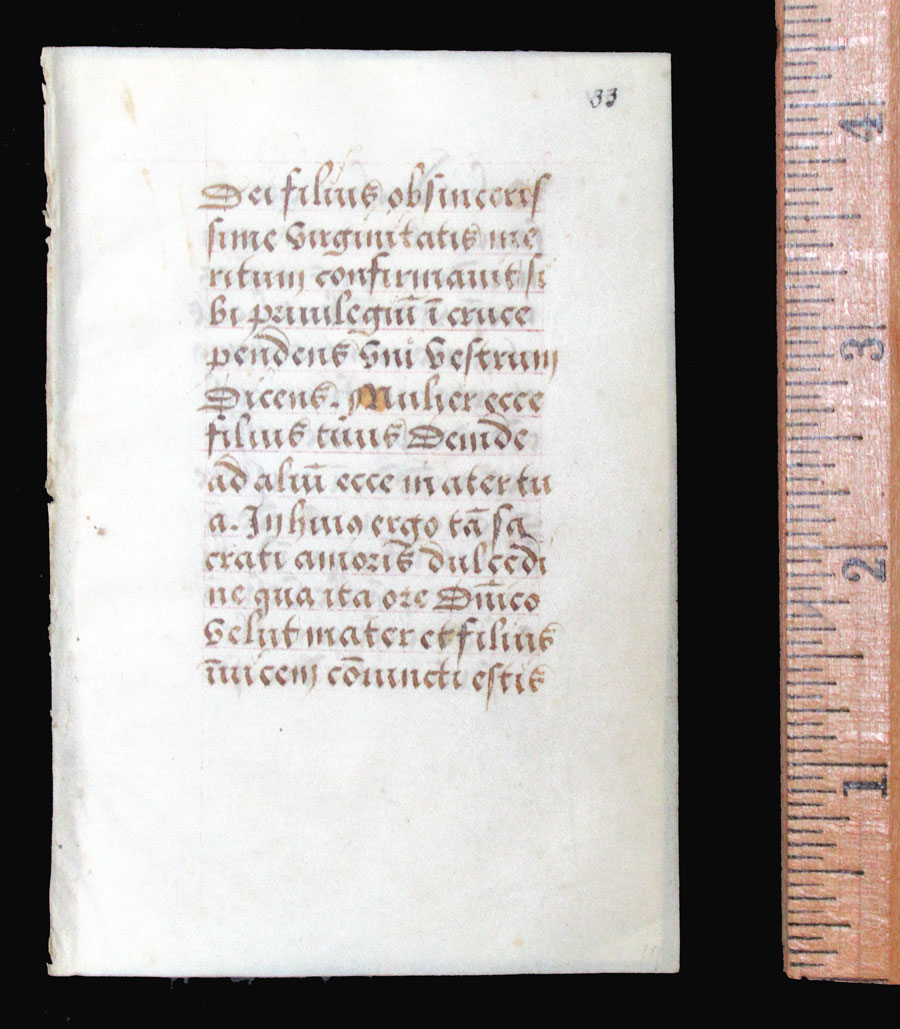 33
Dei filius ob sinceris
sime virginitatis me
ritum confirmavit si
bi privilegiū ī cruce
pendens vni vestrum
Dicens. Mulier ecce
filius tuus Deinde
ad aliū ecce mater tu
a. In huius ergo tā sa
crati amoris dulcedi
ne qua ita ore Dn̄ico
velut mater et filius
īuicem cōiuncti estis
4
3
2
1